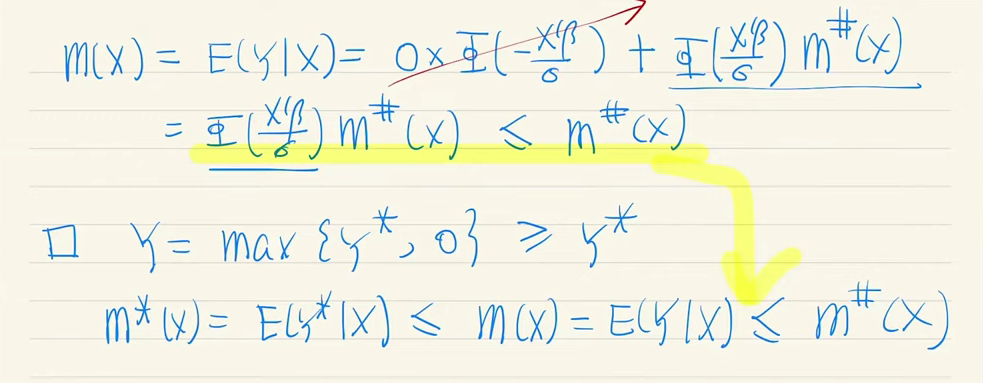 m(X) = E(Y|X) = 0 × Φ(-X'β/σ) + Φ(X'β/σ) m^#(X)
= Φ(X'β/σ) m^#(X) ≤ m^#(X)
□ Y = max {Y*, 0} ≥ Y*
m*(X) = E(Y*|X) ≤ m(X) = E(Y|X) ≤ m^#(X)